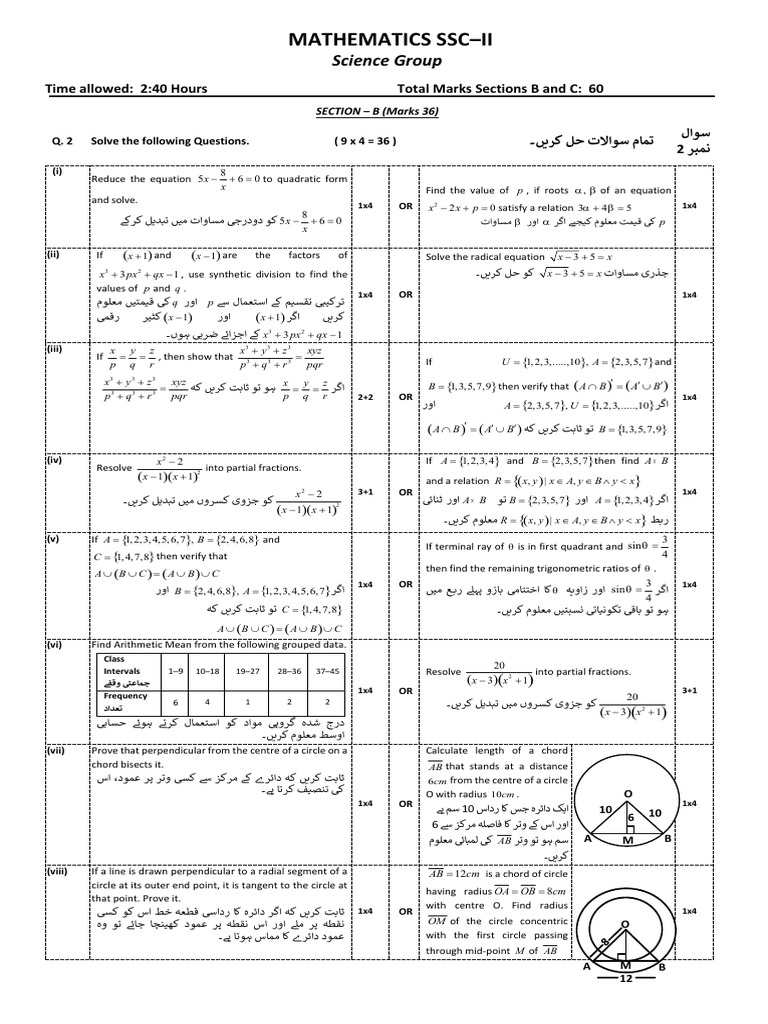 MATHEMATICS SSC–II
Science Group
Time allowed: 2:40 Hours Total Marks Sections B and C: 60
SECTION – B (Marks 36)
Q. 2 Solve the following Questions. ( 9 x 4 = 36 ) تمام سوالات حل کریں۔ سوال نمبر 2
(i)
Reduce the equation 5x − 8/x + 6 = 0 to quadratic form
and solve.
5x − 8/x + 6 = 0 کو دودرجی مساوات میں تبدیل کرکے
1x4
OR
Find the value of p , if roots α, β of an equation
x² − 2x + p = 0 satisfy a relation 3α + 4β = 5
p کی قیمت معلوم کیجیے اگر α اور β مساوات
1x4
(ii)
If (x+1) and (x−1) are the factors of
x³ + 3px² + qx − 1 , use synthetic division to find the
values of p and q .
ترکیبی تقسیم کے استعمال سے p اور q کی قیمتیں معلوم
کریں اگر (x+1) اور (x−1) کثیر رقمی
x³ + 3px² + qx − 1 کے اجزائے ضربی ہوں۔
1x4
OR
Solve the radical equation √(x−3) + 5 = x
جذری مساوات √(x−3) + 5 = x کو حل کریں۔
1x4
(iii)
If x/p = y/q = z/r , then show that (x³ + y³ + z³)/(p³ + q³ + r³) = xyz/pqr
اگر x/p = y/q = z/r ہو تو ثابت کریں کہ (x³ + y³ + z³)/(p³ + q³ + r³) = xyz/pqr
2+2
OR
If U = {1,2,3,.....,10}, A = {2,3,5,7} and
B = {1,3,5,7,9} then verify that (A ∩ B)′ = (A′ ∪ B′)
اگر A = {2,3,5,7}, U = {1,2,3,.....,10} اور
B = {1,3,5,7,9} تو ثابت کریں کہ (A ∩ B)′ = (A′ ∪ B′)
1x4
(iv)
Resolve (x² − 2)/((x−1)(x+1)²) into partial fractions.
(x² − 2)/((x−1)(x+1)²) کو جزوی کسروں میں تبدیل کریں۔
3+1
OR
If A = {1,2,3,4} and B = {2,3,5,7} then find A × B
and a relation R = {(x, y) | x ∈ A, y ∈ B ∧ y < x}
اگر A = {1,2,3,4} اور B = {2,3,5,7} تو A × B اور ثنائی
ربط R = {(x, y) | x ∈ A, y ∈ B ∧ y < x} معلوم کریں۔
1x4
(v)
If A = {1,2,3,4,5,6,7}, B = {2,4,6,8} and
C = {1,4,7,8} then verify that
A ∪ (B ∪ C) = (A ∪ B) ∪ C
اگر B = {2,4,6,8}, A = {1,2,3,4,5,6,7} اور
C = {1,4,7,8} تو ثابت کریں کہ
A ∪ (B ∪ C) = (A ∪ B) ∪ C
1x4
OR
If terminal ray of θ is in first quadrant and sin θ = 3/4
then find the remaining trigonometric ratios of θ .
اگر sin θ = 3/4 اور زاویہ θ کا اختتامی بازو پہلے ربع میں
ہو تو باقی تکونیاتی نسبتیں معلوم کریں۔
1x4
(vi)
Find Arithmetic Mean from the following grouped data.
Class Intervals جماعتی وقفے 1–9 10–18 19–27 28–36 37–45
Frequency تعداد 6 4 1 2 2
درج شدہ گروہی مواد کو استعمال کرتے ہوئے حسابی
اوسط معلوم کریں۔
1x4
OR
Resolve 20/((x−3)(x²+1)) into partial fractions.
20/((x−3)(x²+1)) کو جزوی کسروں میں تبدیل کریں۔
3+1
(vii)
Prove that perpendicular from the centre of a circle on a
chord bisects it.
ثابت کریں کہ دائرے کے مرکز سے کسی وتر پر عمود، اس
کی تنصیف کرتا ہے۔
1x4
OR
Calculate length of a chord
AB that stands at a distance
6cm from the centre of a circle
O with radius 10cm .
ایک دائرہ جس کا رداس 10 سم ہے
اور اس کے وتر کا فاصلہ مرکز سے 6
سم ہو تو وتر AB کی لمبائی معلوم
کریں۔
O
10 6 10
A M B
1x4
(viii)
If a line is drawn perpendicular to a radial segment of a
circle at its outer end point, it is tangent to the circle at
that point. Prove it.
ثابت کریں کہ اگر دائرہ کا رداسی قطعہ خط اس کو کسی
نقطہ پر ملے اور اس نقطہ پر عمود کھینچا جائے تو وہ
عمود دائرے کا مماس ہوتا ہے۔
1x4
OR
AB = 12cm is a chord of circle
having radius OA = OB = 8cm
with centre O. Find radius
OM of the circle concentric
with the first circle passing
through mid-point M of AB
O
8
A M B
12
1x4